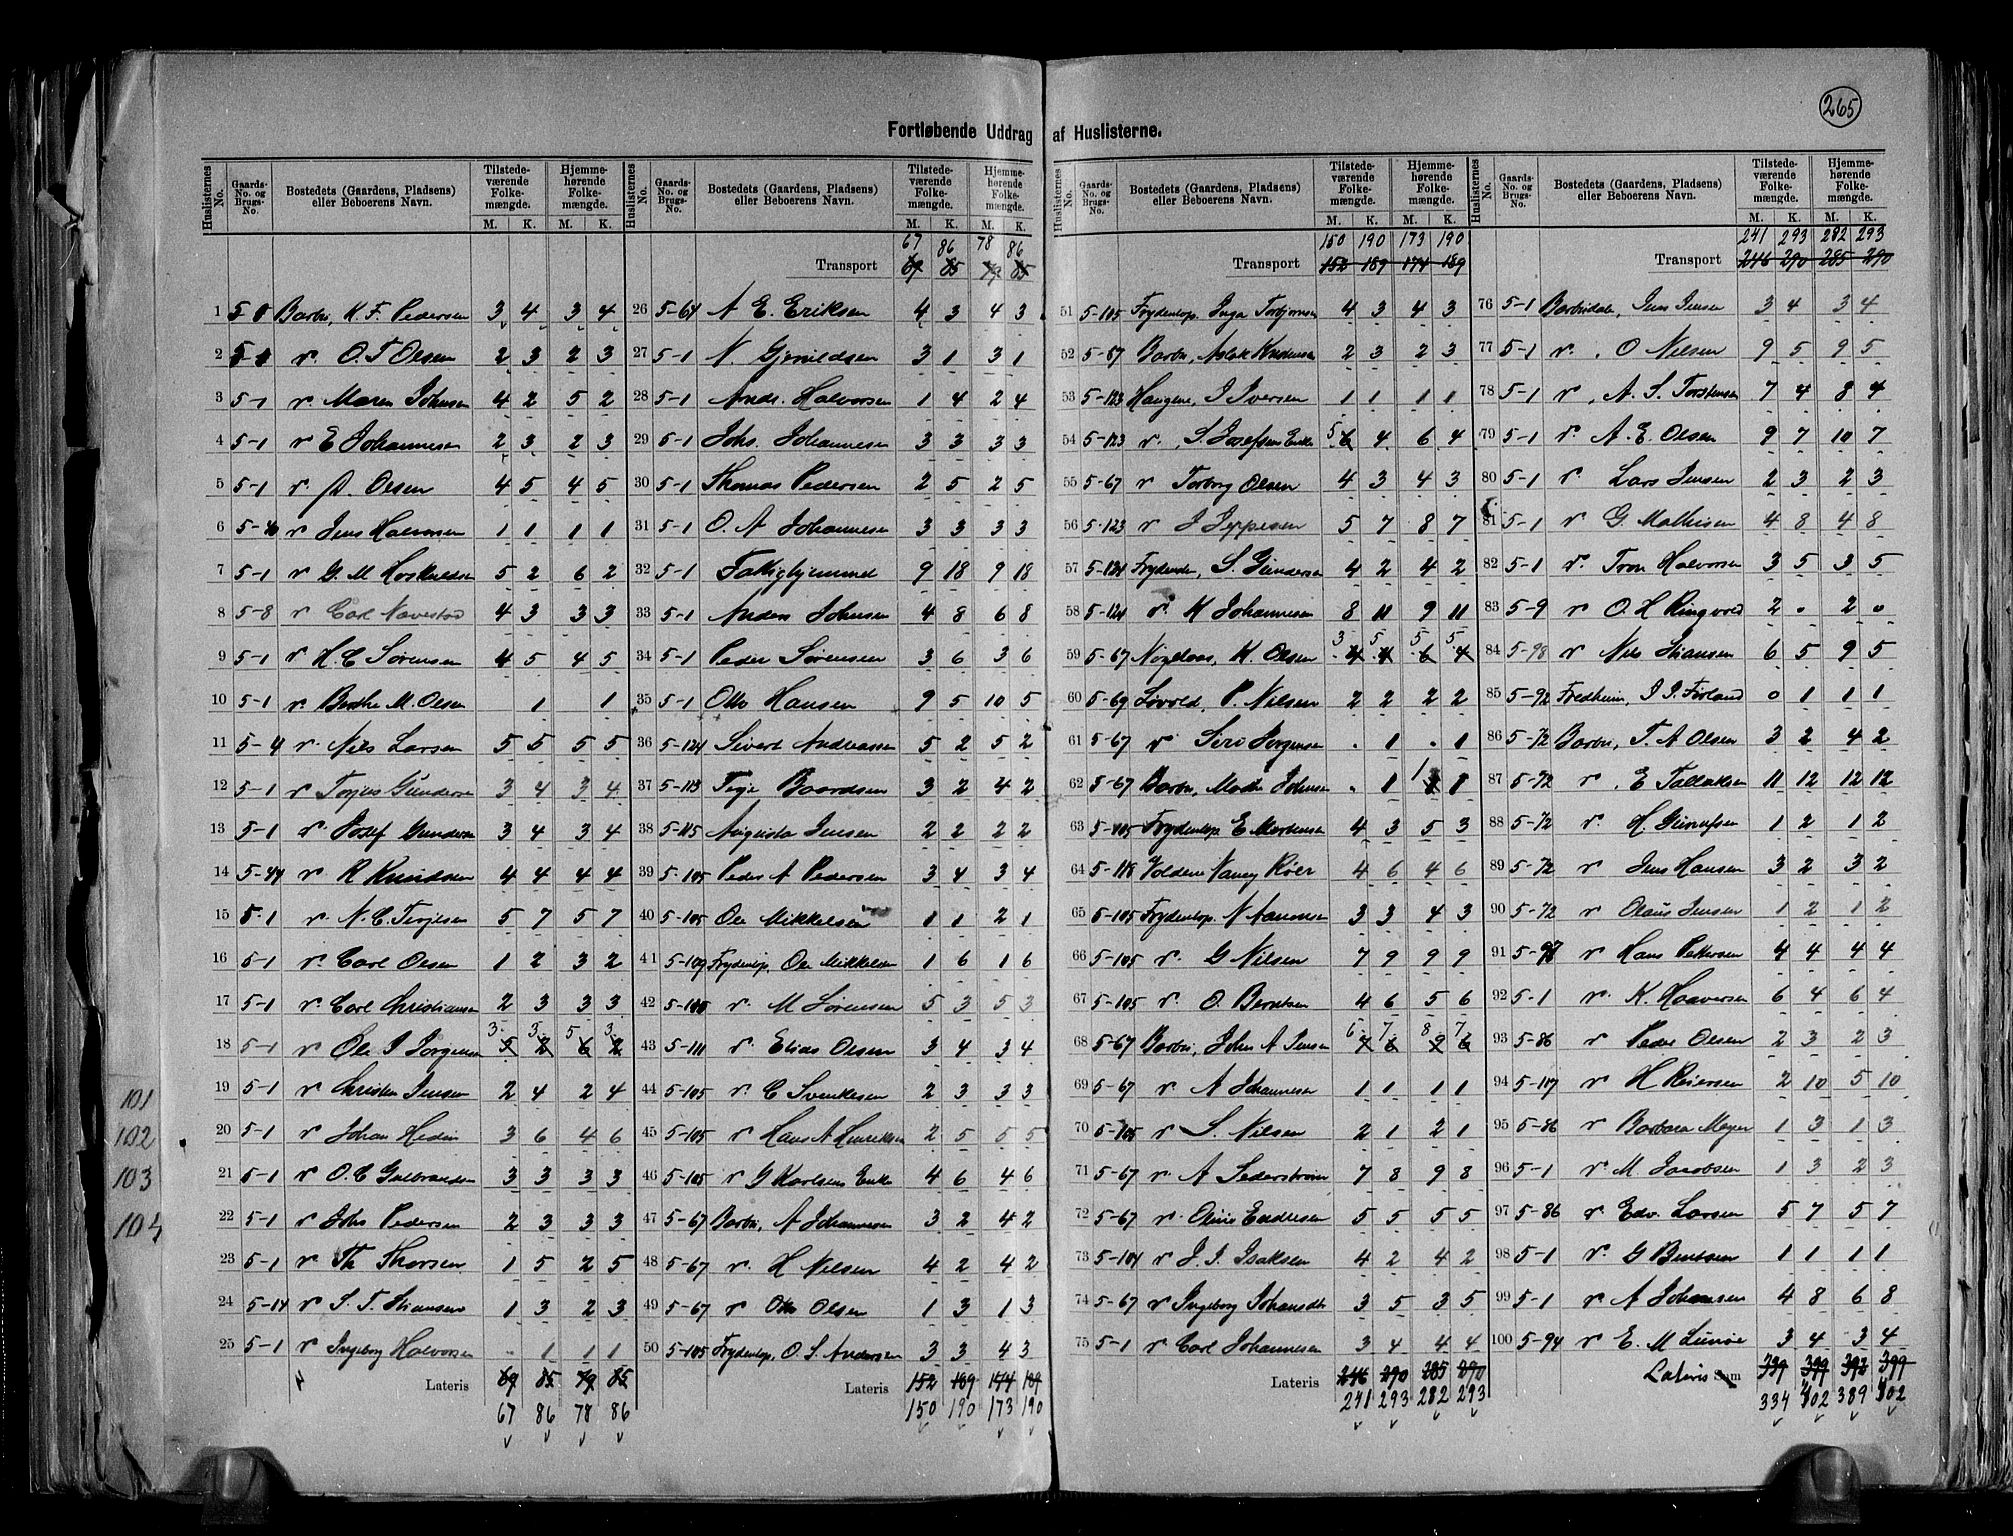 265
Fortløbende Uddrag af Huslisterne.
Huslisternes No. Gaards-No. og Brugs-No. Bostedets (Gaardens, Pladsens) eller Beboerens Navn. Tilstedeværende Folkemængde. Hjemmehørende Folkemængde. M. K. M. K.
1 Barbu, K. F. Pedersen 3 4 3 4
2 " O. T. Olsen 2 3 2 3
3 5-1 " Maren Johnsen 4 2 5 2
4 5-1 " E Johannesen 2 3 2 3
5 5-1 " P. Olsen 4 5 4 5
6 " Jens Halvorsen 1 1 1 1
7 5-1 " G. M Hoskuldsen 5 2 6 2
8 5-8 " Carl Navestad 4 3 3 3
9 5-1 " H. C Sørensen 4 5 4 5
10 5-1 " Berthe M. Olsen 1 1
11 5-4 " Nils Larsen 5 5 5 5
12 5-1 " Terjus Gundersen 3 4 3 4
13 5-1 " Josef Gundersen 3 4 3 4
14 5-44 " K Knudsen 4 4 4 4
15 5-1 " N. C. Terjesen 5 7 5 7
16 5-1 " Carl Olsen 1 2 3 2
17 5-1 " Carl Christiansen 2 3 3 3
18 5-1 " Ole J Jorgensen 3 3 5 3
19 5-1 " Christen Jensen 2 4 2 4
20 5-1 " Johan Hedin 3 6 4 6
21 5-1 " O. C Gulbrandsen 3 3 3 3
22 5-1 " Johs Pedersen 2 3 3 3
23 5-1 " Th Thorsen 1 5 2 5
24 5-14 " S. T. Stiansen 1 3 2 3
25 5-1 " Ingeborg Halvorsen 1 1 1
Lateris 69 85 79 85
67 86 78 86
101
102
103
104
67 86 78 86
Transport 69 85 79 85
26 5-64 A E. Eriksen 4 3 4 3
27 5-1 N. Gjeruldsen 3 1 3 1
28 5-1 Andr. Halvorsen 1 4 2 4
29 5-1 Johs. Johannesen 3 3 3 3
30 5-1 Thomas Pedersen 2 5 2 5
31 5-1 O. A Johannesen 3 3 3 3
32 5-1 Fattighjemmet 9 18 9 18
33 5-1 Anders Johnsen 4 8 6 8
34 5-1 Peder Sørensen 3 6 3 6
35 5-1 Otto Hansen 9 5 10 5
36 5-124 Sivert Andreassen 5 2 5 2
37 5-113 Terje Baardsen 3 2 4 2
38 5-115 Augusta Jensen 2 2 2 2
39 5-105 Peder A Pedersen 3 4 3 4
40 5-105 Ole Mikkelsen 1 1 2 1
41 5-109 Frydenlop, Ole Mikkelsen 1 6 1 6
42 " M Sørensen 5 3 5 3
43 5-111 " Elias Olsen 3 4 3 4
44 5-105 " C Svenksen 2 3 3 3
45 5-105 " Hans A Henriksen 2 5 5 5
46 5-105 " G Karlsens Enke 4 6 4 6
47 5-67 Barbu, A Johannesen 3 2 4 2
48 5-67 " H Nilsen 4 2 4 2
49 5-67 " Otto Olsen 1 3 1 3
50 5-105 Frydenlop, O. S. Andersen 3 3 4 3
Lateris 152 189 174 189
150 190 173 190
150 190 173 190
Transport 152 189 174 189
51 5-105 Frydenlop. Inga Torbjornsen 4 3 4 3
52 5-67 Barbu, Aslak Knudsen 2 3 2 3
53 5-123 Haugene, J Iversen 1 1 1 1
54 5-123 " S. Josefsens Enke 5 6 4 6 4
55 5-67 " Torborg Olsen 4 3 4 3
56 5-123 " J Jeppesen 5 7 8 7
57 5-124 S. Gundersen 4 2 4 2
58 5-124 " K Johannesen 8 11 9 11
59 5-67 K. Olsen 3 5 5 5
60 5-69 Løvold, P. Nilsen 2 2 2 2
61 5-67 " Siri Jorgensen 1 1
62 5-67 Barbu, Mathe Johnsen 1 1 1
63 5-105 Frydenlop. E Mortensen 4 3 5 3
64 5-118 Voldene Nancy Röer 4 6 4 6
65 5-105 Frydenlop. N Aanonsen 3 3 4 3
66 5-105 " G Nilsen 7 9 9 9
67 5-105 " O. Berntsen 4 6 5 6
68 5-67 Barbu, John A Jensen 6 7 8 7
69 5-67 " A Johannesen 1 1 1 1
70 5-105 " S. Nilsen 2 1 2 1
71 5-67 " A Sederstrøm 7 8 9 8
72 5-67 " Olivis Endresen 5 5 5 5
73 5-104 " J. J. Isaksen 4 2 4 2
74 5-67 " Ingeborg Johansdt 3 5 3 5
75 5-1 " Carl Johannesen 3 4 4 4
Lateris 246 290 285 290
241 293 282 293
241 293 282 293
Transport 246 290 285 290
76 5-1 Barbudale, Jens Jensen 3 4 3 4
77 5-1 " , O Nilsen 9 5 9 5
78 5-1 " , A. S. Torstensen 7 4 8 4
79 5-1 " A. E. Olsen 9 7 10 7
80 5-1 " Lars Jensen 2 3 2 3
81 5-1 " G. Mathisen 4 8 4 8
82 5-1 " Tron Halvorsen 3 5 3 5
83 5-9 " O. H Ringvold 2 0 2 0
84 5-98 " Nils Stiansen 6 5 9 5
85 5-92 Fredheim, J J. Førland 0 1 1 1
86 5-72 Barbu, T. A Olsen 3 2 4 2
87 5-72 " , E Tallaksen 11 12 12 12
88 5-72 " H. Gunufsen 1 2 1 2
89 5-72 " Jens Hansen 3 2 3 2
90 5-72 " Olaus Jensen 1 2 1 2
91 " Hans Pettersen 4 4 4 4
92 5-1 " K. Haaversen 6 4 6 4
93 5-86 " Peder Olsen 2 3 2 3
94 5-117 " H Reiersen 2 10 5 10
95 5-86 " Barbara Meyer 1 3 1 3
96 5-1 " M. Jacobsen 1 3 2 3
97 5-86 " Edv. Larsen 5 7 5 7
98 5-1 " G Bentsen 1 1 1 1
99 5-1 " A Johansen 4 8 6 8
100 5-94 " E. M Lunøe 3 4 3 4
Lateris Sum 339 399 392 399
334 402 389 402